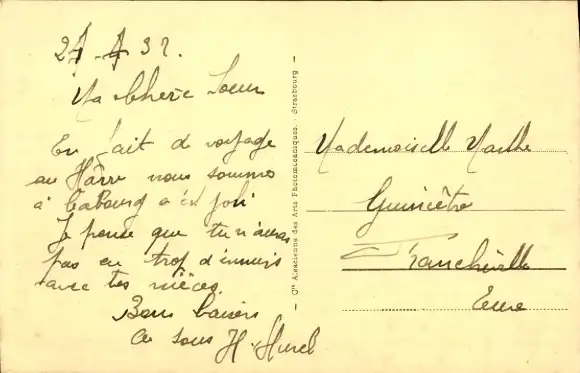 24 - 4 37.
Ma Chère Soeur
En fait de voyage
au Havre nous sommes
à Cabourg c'est joli
Je pense que tu n'auras
pas eu trop d'ennuis
avec tes nièces.
Bons baisers
à tous H. Hurel
Cie Alsacienne des Arts Photomécaniques. - Strasbourg -
Mademoiselle Marthe
Francheville
Eure